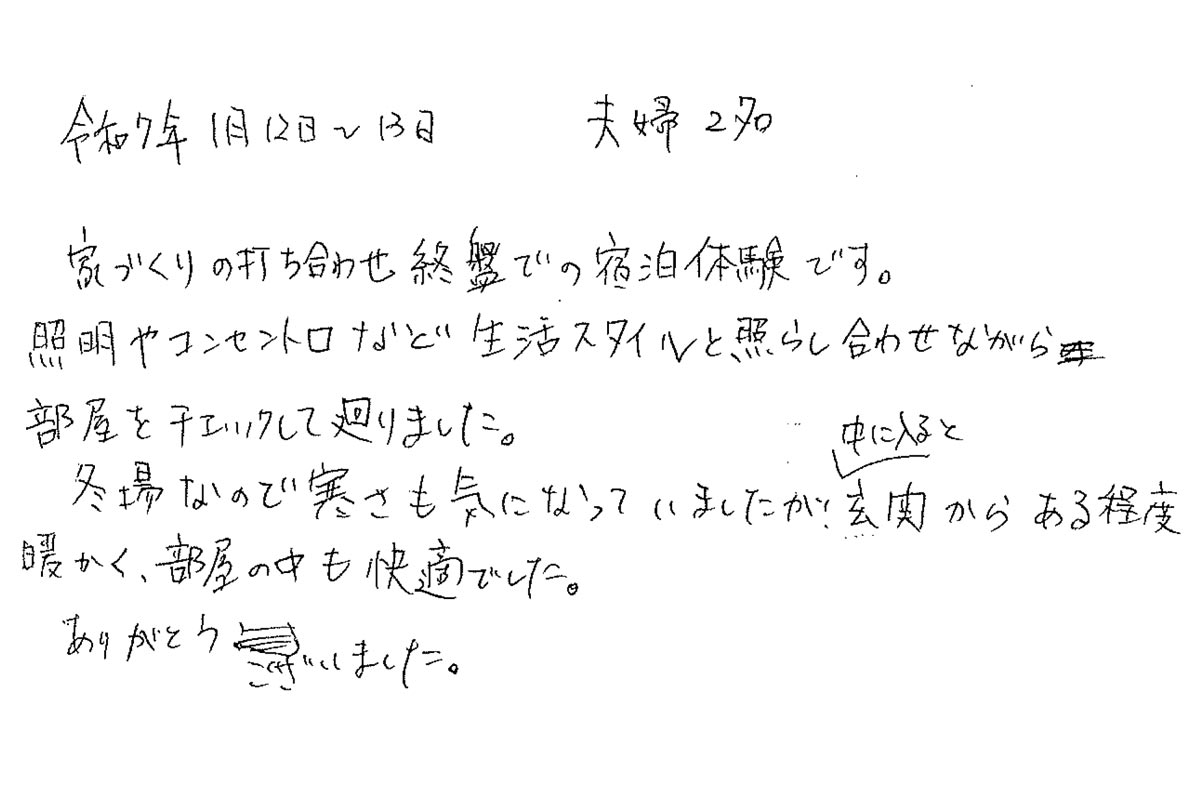 令和7年1月12日～13日　夫婦2名
家づくりの打ち合わせ終盤での宿泊体験です。
照明やコンセントロなど生活スタイルと照らし合わせながら
部屋をチェックして廻りました。
中に入ると
冬場なので寒さも気になっていましたが、玄関からある程度
暖かく、部屋の中も快適でした。
ありがとうございました。